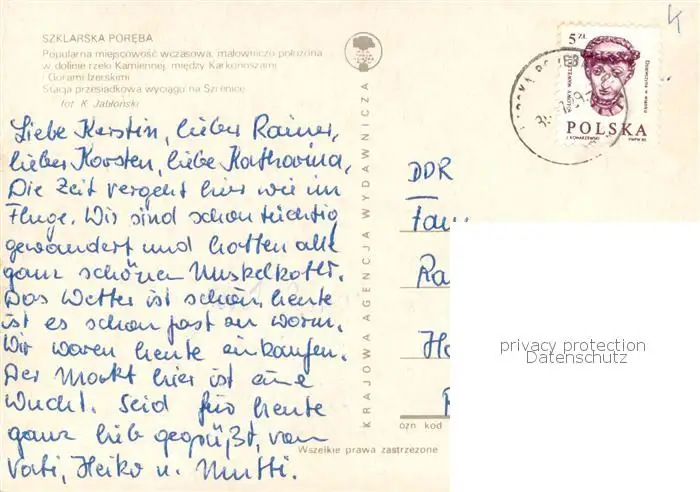 SZKLARSKA PORĘBA
Popularna miejscowość wczasowa, malowniczo położona
w dolinie rzeki Kamiennej, między Karkonoszami
i Górami Izerskimi
Stacja przesiadkowa wyciągu na Szrenicę
fot. K. Jabłoński
Liebe Kerstin, lieber Rainer,
lieber Karsten, liebe Katharina,
Die Zeit vergeht hier wie im
Fluge. Wir sind schon tüchtig
gewandert und hatten alle
ganz schönen Muskelkater.
Das Wetter ist schön, heute
ist es schon fast zu warm.
Wir waren heute einkaufen.
Der Markt hier ist eine
Wucht. Seid für heute
ganz lieb gegrüßt, von
Vati, Heiko u. Mutti.
KRAJOWA AGENCJA WYDAWNICZA
5 ZŁ
POLSKA
J. KONARZEWSKI
PWPW 85
DDR
Fam
Ra
Ha
ozn kod
Wszelkie prawa zastrzeżone
privacy protection
Datenschutz